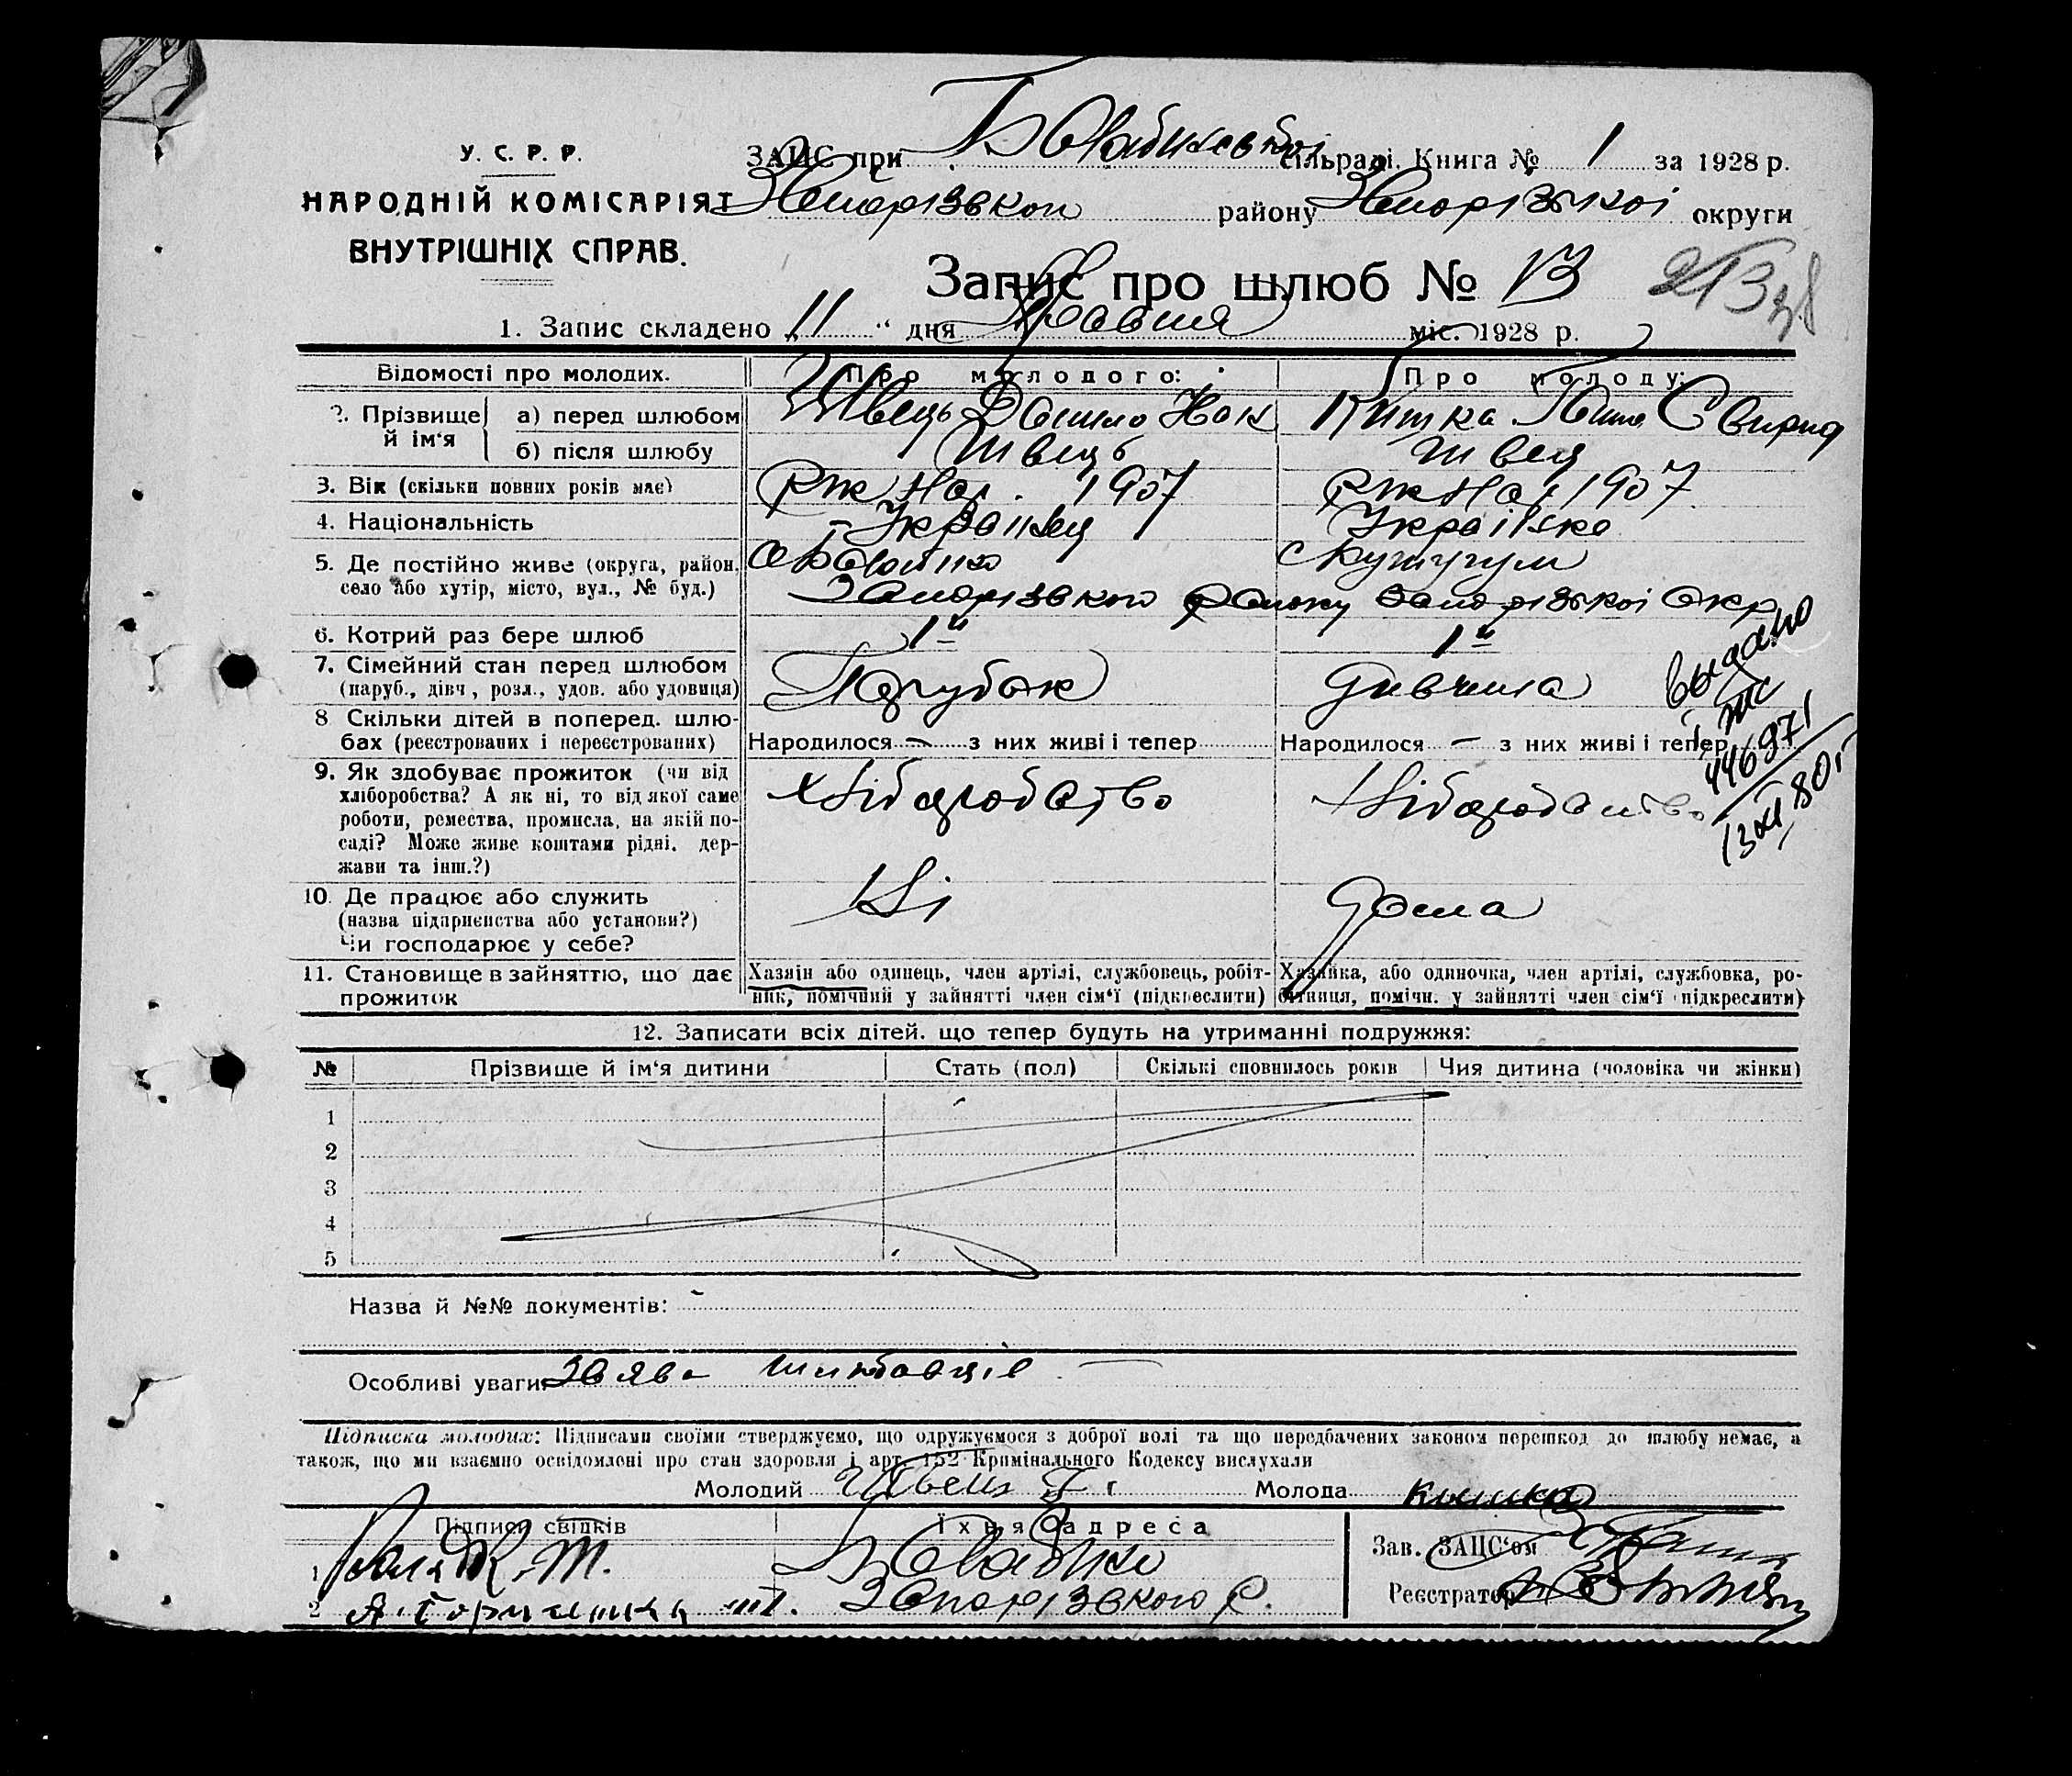 У. С. Р. Р.
НАРОДНІЙ КОМІСАРІЯТ
ВНУТРІШНІХ СПРАВ.
ЗАПС при сільраді. Книга № 1 за 1928 р.
району Запорізької округи
Запис про шлюб № 13
1. Запис складено 11 " дня Травня міс. 1928 р.
Відомості про молодих. Про молодого: Про молоду:
2. Прізвище й ім'я а) перед шлюбом Швець Данило Кишка Свирид
б) після шлюбу Швець Швец
3. Вік (скільки повних років має) рік нар. 1907 рік нар 1907
4. Національність Українец Українка
5. Де постійно живе (округа, район, село або хутір, місто, вул., № буд.) с Кушугум
Запорізького району Запорізької Окр
6. Котрий раз бере шлюб 1й 1й
7. Сімейний стан перед шлюбом (паруб., дівч., розл., удов. або удовиця) Парубок дивчина
8 Скільки дітей в поперед. шлюбах (реєстрованих і нереєстрованих) Народилося — з них живі і тепер Народилося — з них живі і тепер
9. Як здобуває прожиток (чи від хліборобства? А як ні, то від якої саме роботи, ремества, промисла, на якій посаді? Може живе коштами рідні, держави та інш.?) хліборобство хліборобство
10. Де працює або служить (назва підприємства або установи?) Чи господарює у себе? дома
11. Становище в зайняттю, що дає прожиток Хазяїн або одинець, член артілі, службовець, робітник, помічний у зайнятті член сім'ї (підкреслити) Хазяйка, або одиночка, член артілі, службовка, робітниця, помічн. у зайнятті член сім'ї (підкреслити)
выдано
446971
12. Записати всіх дітей, що тепер будуть на утриманні подружжя:
№ Прізвище й ім'я дитини Стать (пол) Скількі сповнилось років Чия дитина (чоловіка чи жінки)
1
2
3
4
5
Назва й №№ документів:
Особливі уваги: Заява
Підписка молодих: Підписами своїми стверджуємо, що одружуємося з доброї волі та що передбачених законом перешкод до шлюбу немає, а
також, що ми взаємно освідомлені про стан здоровля і арт. 152 Кримінального Кодексу вислухали
Молодий Швець Молода кышка
Підписи свідків Їхня адреса Зав. ЗАПС'ом
1
2 Запорізького р. Реєстратор